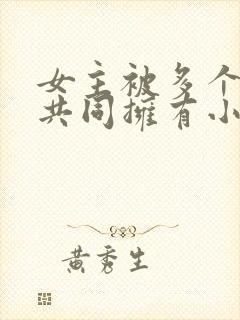 女主被多个
共同擁有小
黄秀生